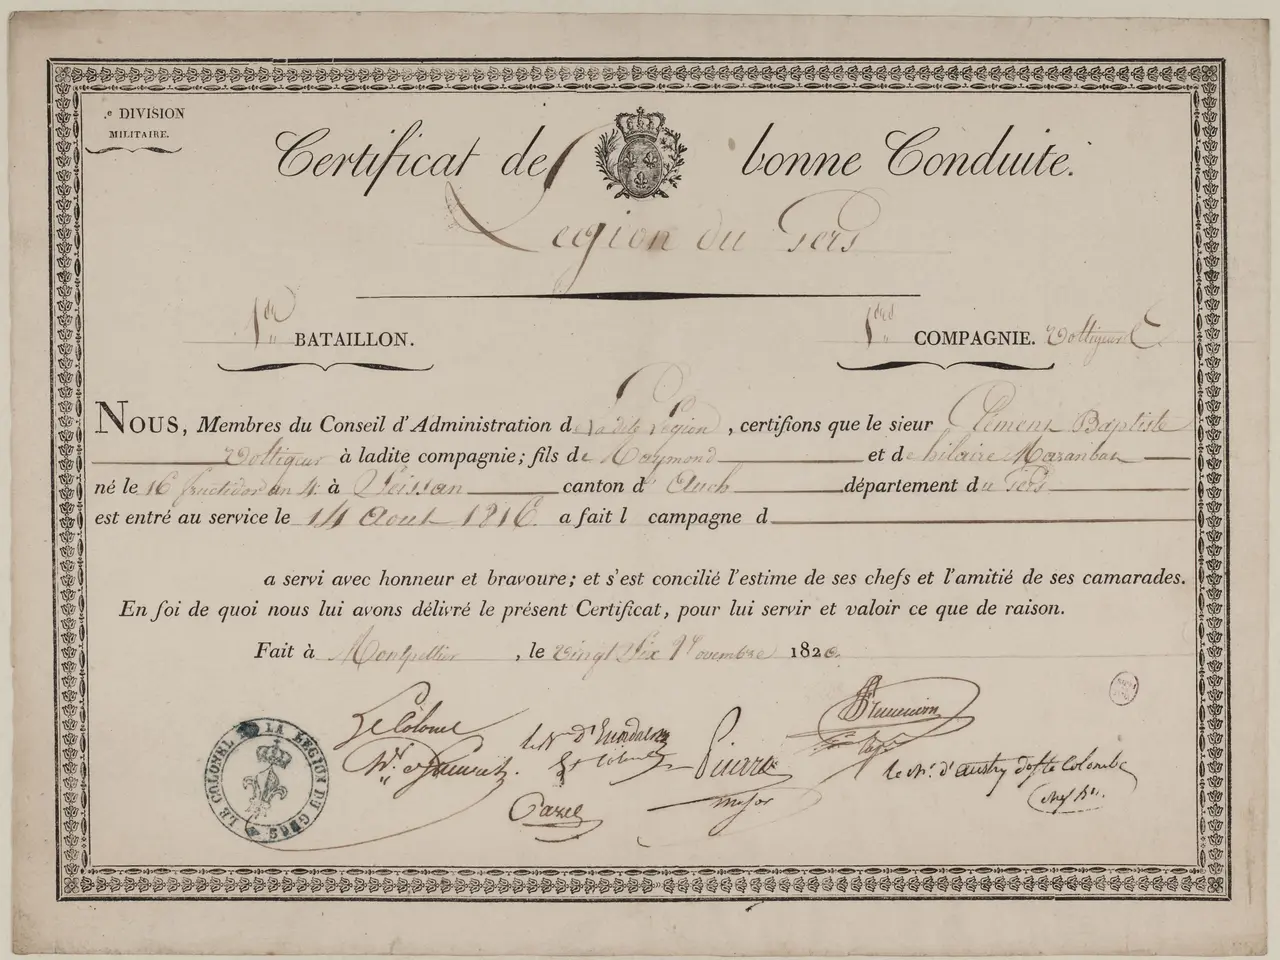 .e DIVISION
MILITAIRE.
Certificat de bonne Conduite.
Légion du Gers
1er BATAILLON.
COMPAGNIE. Voltigeurs
NOUS, Membres du Conseil d'Administration de ladite Légion, certifions que le sieur Clément Baptiste
Voltigeur à ladite compagnie; fils de Raymond et de hilaire
né le 16 fructidor an 4 à Seissan canton d'Auch département du Gers
est entré au service le 14 Aout 1816 a fait l campagne d
a servi avec honneur et bravoure; et s'est concilié l'estime de ses chefs et l'amitié de ses camarades.
En foi de quoi nous lui avons délivré le présent Certificat, pour lui servir et valoir ce que de raison.
Fait à Montpellier, le vingt Six Novembre 1820.
Le Colonel
Lt Colonel
Cazes
major
LE COLONEL DE LA LEGION DU GERS